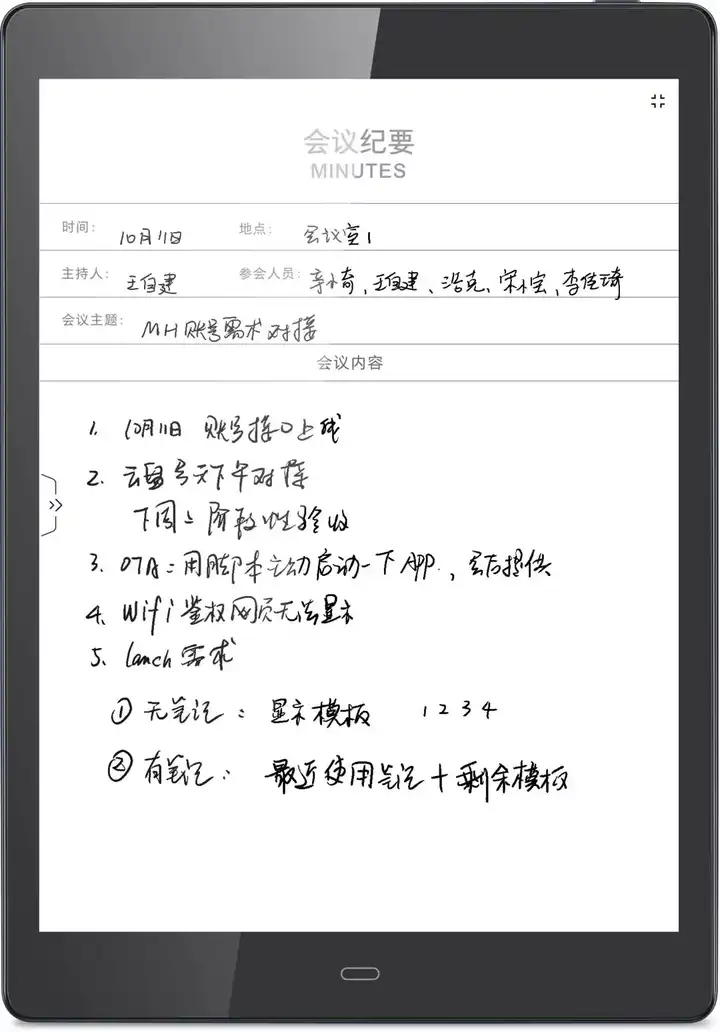 会议纪要
MINUTES
时间： 10月11日 地点： 会议室1
主持人： 王自建 参会人员： 辛小奇、王自建、浩克、宋小宝、李佳琦
会议主题： MH账号需求对接
会议内容
1. 10月11日 账号接口上线
2. 云盘今天下午对接
下周二阶段性验收
3. OTA：用脚本主动启动一下APP.，会后提供
4. Wifi鉴权网页无法显示
5. lanch需求
① 无笔记： 显示模板 1 2 3 4
② 有笔记： 最近使用笔记+剩余模板